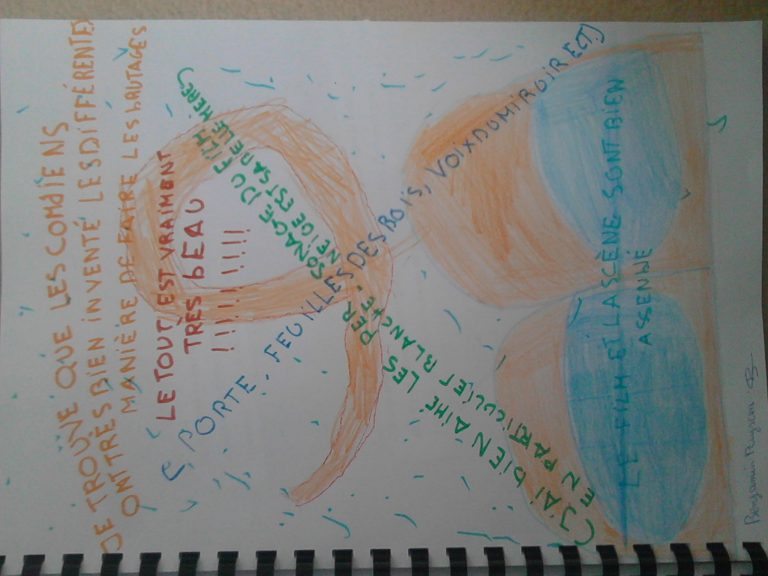 JE TROUVE QUE LES COMDIENS
ONT TRÈS BIEN INVENTÉ LES DIFFÉRENTES
MANIÈRE DE FAIRE LES bRUTAGES
LE TOUT EST VRAIMENT
TRÈS bEAU
!!!!!!!!!!
(PORTE, FEUILLES DES BOIS, VOIX DU MIROIR ECT)
(J'AI BIEN AIMÉ LES PERSONAGE DU FILM
EN PARTICULIER BLANCHE-NEIGE EST SA BELLE MÈRE)
LE FILM ET LA SCÈNE SONT BIEN
ASSEMblÉ
Benjamin